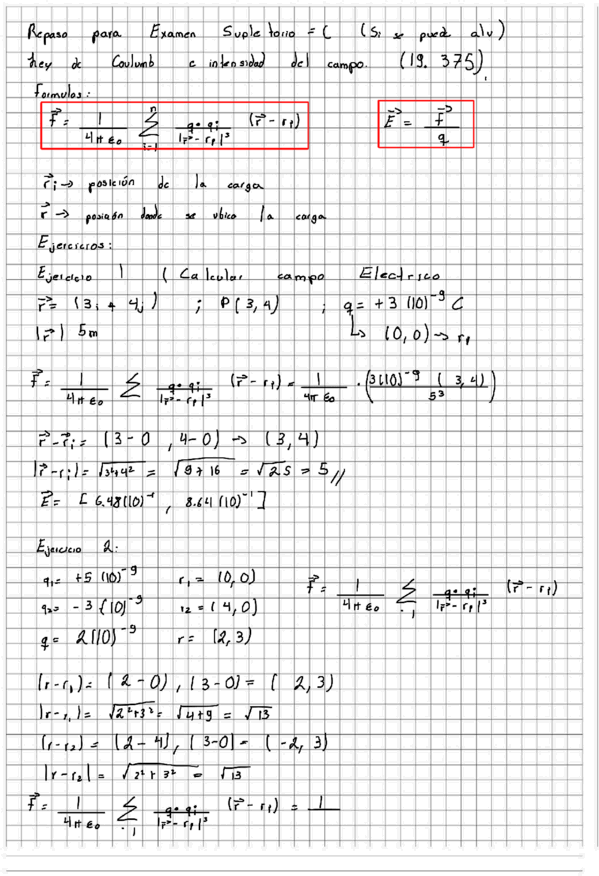 Repaso para Examen Supletorio =( (Si se puede alv)
Ley de Coulumb e intensidad del campo. (19. 375)
Formulas:
F⃗ = 1/(4π ε₀) Σ_{i=1}^{n} (q• qi)/|r⃗ - r₁|³ (r⃗ - r₁)    E⃗ = F⃗/q
r⃗i → posición de la carga
r⃗ → posición donde se ubica la carga
Ejercicios:
Ejercicio 1 (Calcular campo Electrico
r⃗ = (3i + 4j) ; P(3,4) ; q = +3 (10)⁻⁹ C
|r⃗| 5m    ↳ (0,0) → r₁
F⃗ = 1/(4π ε₀) Σ (q• qi)/|r⃗ - r₁|³ (r⃗ - r₁) = 1/(4π ε₀) · (3(10)⁻⁹ (3,4)/5³)
r⃗ - r⃗i = (3-0 , 4-0) → (3,4)
|r⃗ - ri| = √(3²+4²) = √(9+16) = √25 = 5 //
E⃗ = [6.48(10)⁻¹ , 8.64(10)⁻¹]
Ejercicio 2:
q₁ = +5 (10)⁻⁹    r₁ = (0,0)    F⃗ = 1/(4π ε₀) Σ_{i=1} (q• qi)/|r⃗ - r₁|³ (r⃗ - r₁)
q₂ = -3 (10)⁻⁹    r₂ = (4,0)
q = 2(10)⁻⁹    r = (2,3)
(r-r₁) = (2-0), (3-0) = (2,3)
|r-r₁| = √(2²+3²) = √(4+9) = √13
(r-r₂) = (2-4), (3-0) = (-2, 3)
|r-r₂| = √(2²+3²) = √13
F⃗ = 1/(4π ε₀) Σ_{i=1} (q• qi)/|r⃗ - r₁|³ (r⃗ - r₁) = 1